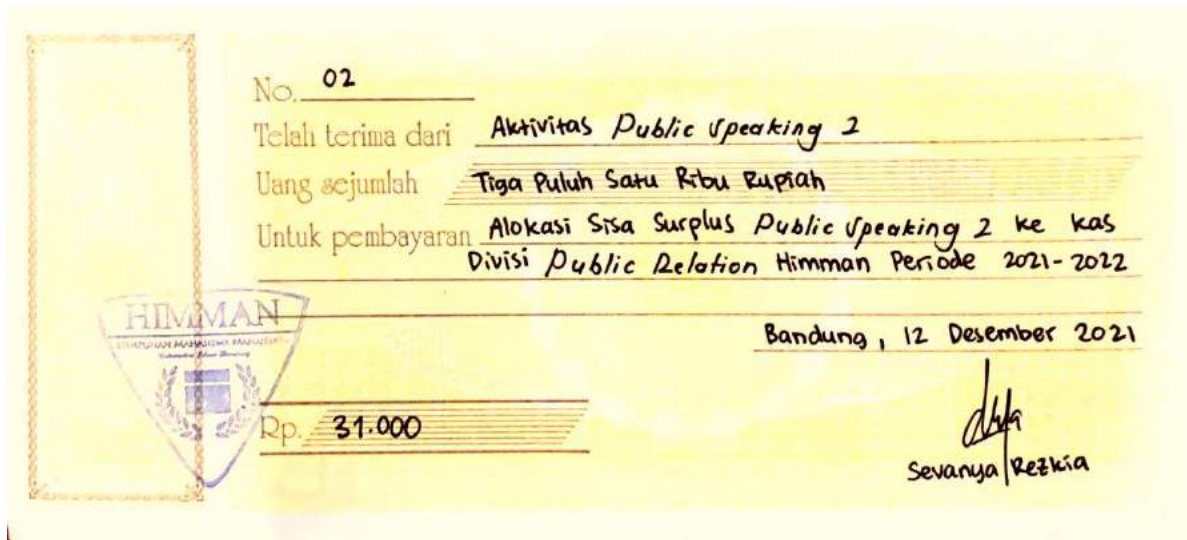 No. 02
Telah terima dari Aktivitas Public Speaking 2
Uang sejumlah Tiga Puluh Satu Ribu Rupiah
Untuk pembayaran Alokasi Sisa Surplus Public Speaking 2 ke kas
Divisi Public Relation Himman Periode 2021-2022
HIMMAN
HIMPUNAN MAHASISWA
Bandung, 12 Desember 2021
Rp. 31.000
Sevanya Rezkia